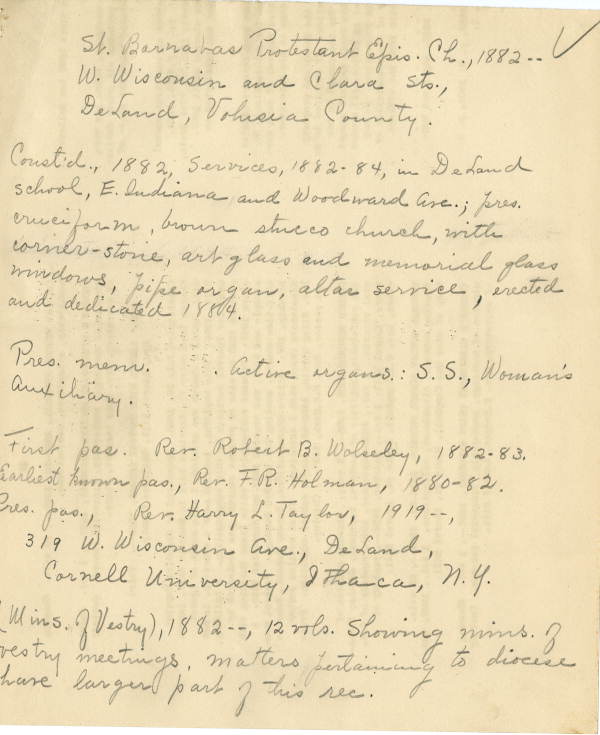 St. Barnabas Protestant Epis. Ch., 1882--
W. Wisconsin and Clara Sts.,
DeLand, Volusia County.
Const'd., 1882, Services, 1882-84, in DeLand
school, E. Indiana and Woodward Ave.; pres.
cruciform, brown stucco church, with
corner-stone, art glass and memorial glass
windows, pipe organ, altar service, erected
and dedicated 1884.
Pres. mem. . Active organs.: S.S., Woman's
Auxiliary.
First pas. Rev. Robert B. Wolseley, 1882-83.
Earliest known pas., Rev. F.R. Holman, 1880-82.
Pres. pas., Rev. Harry L. Taylor, 1919--,
319 W. Wisconsin Ave., DeLand,
Cornell University, Ithaca, N.Y.
(Mins. of Vestry), 1882--, 12 vols. Showing mins. of
vestry meetings, matters pertaining to diocese
have larger part of this rec.